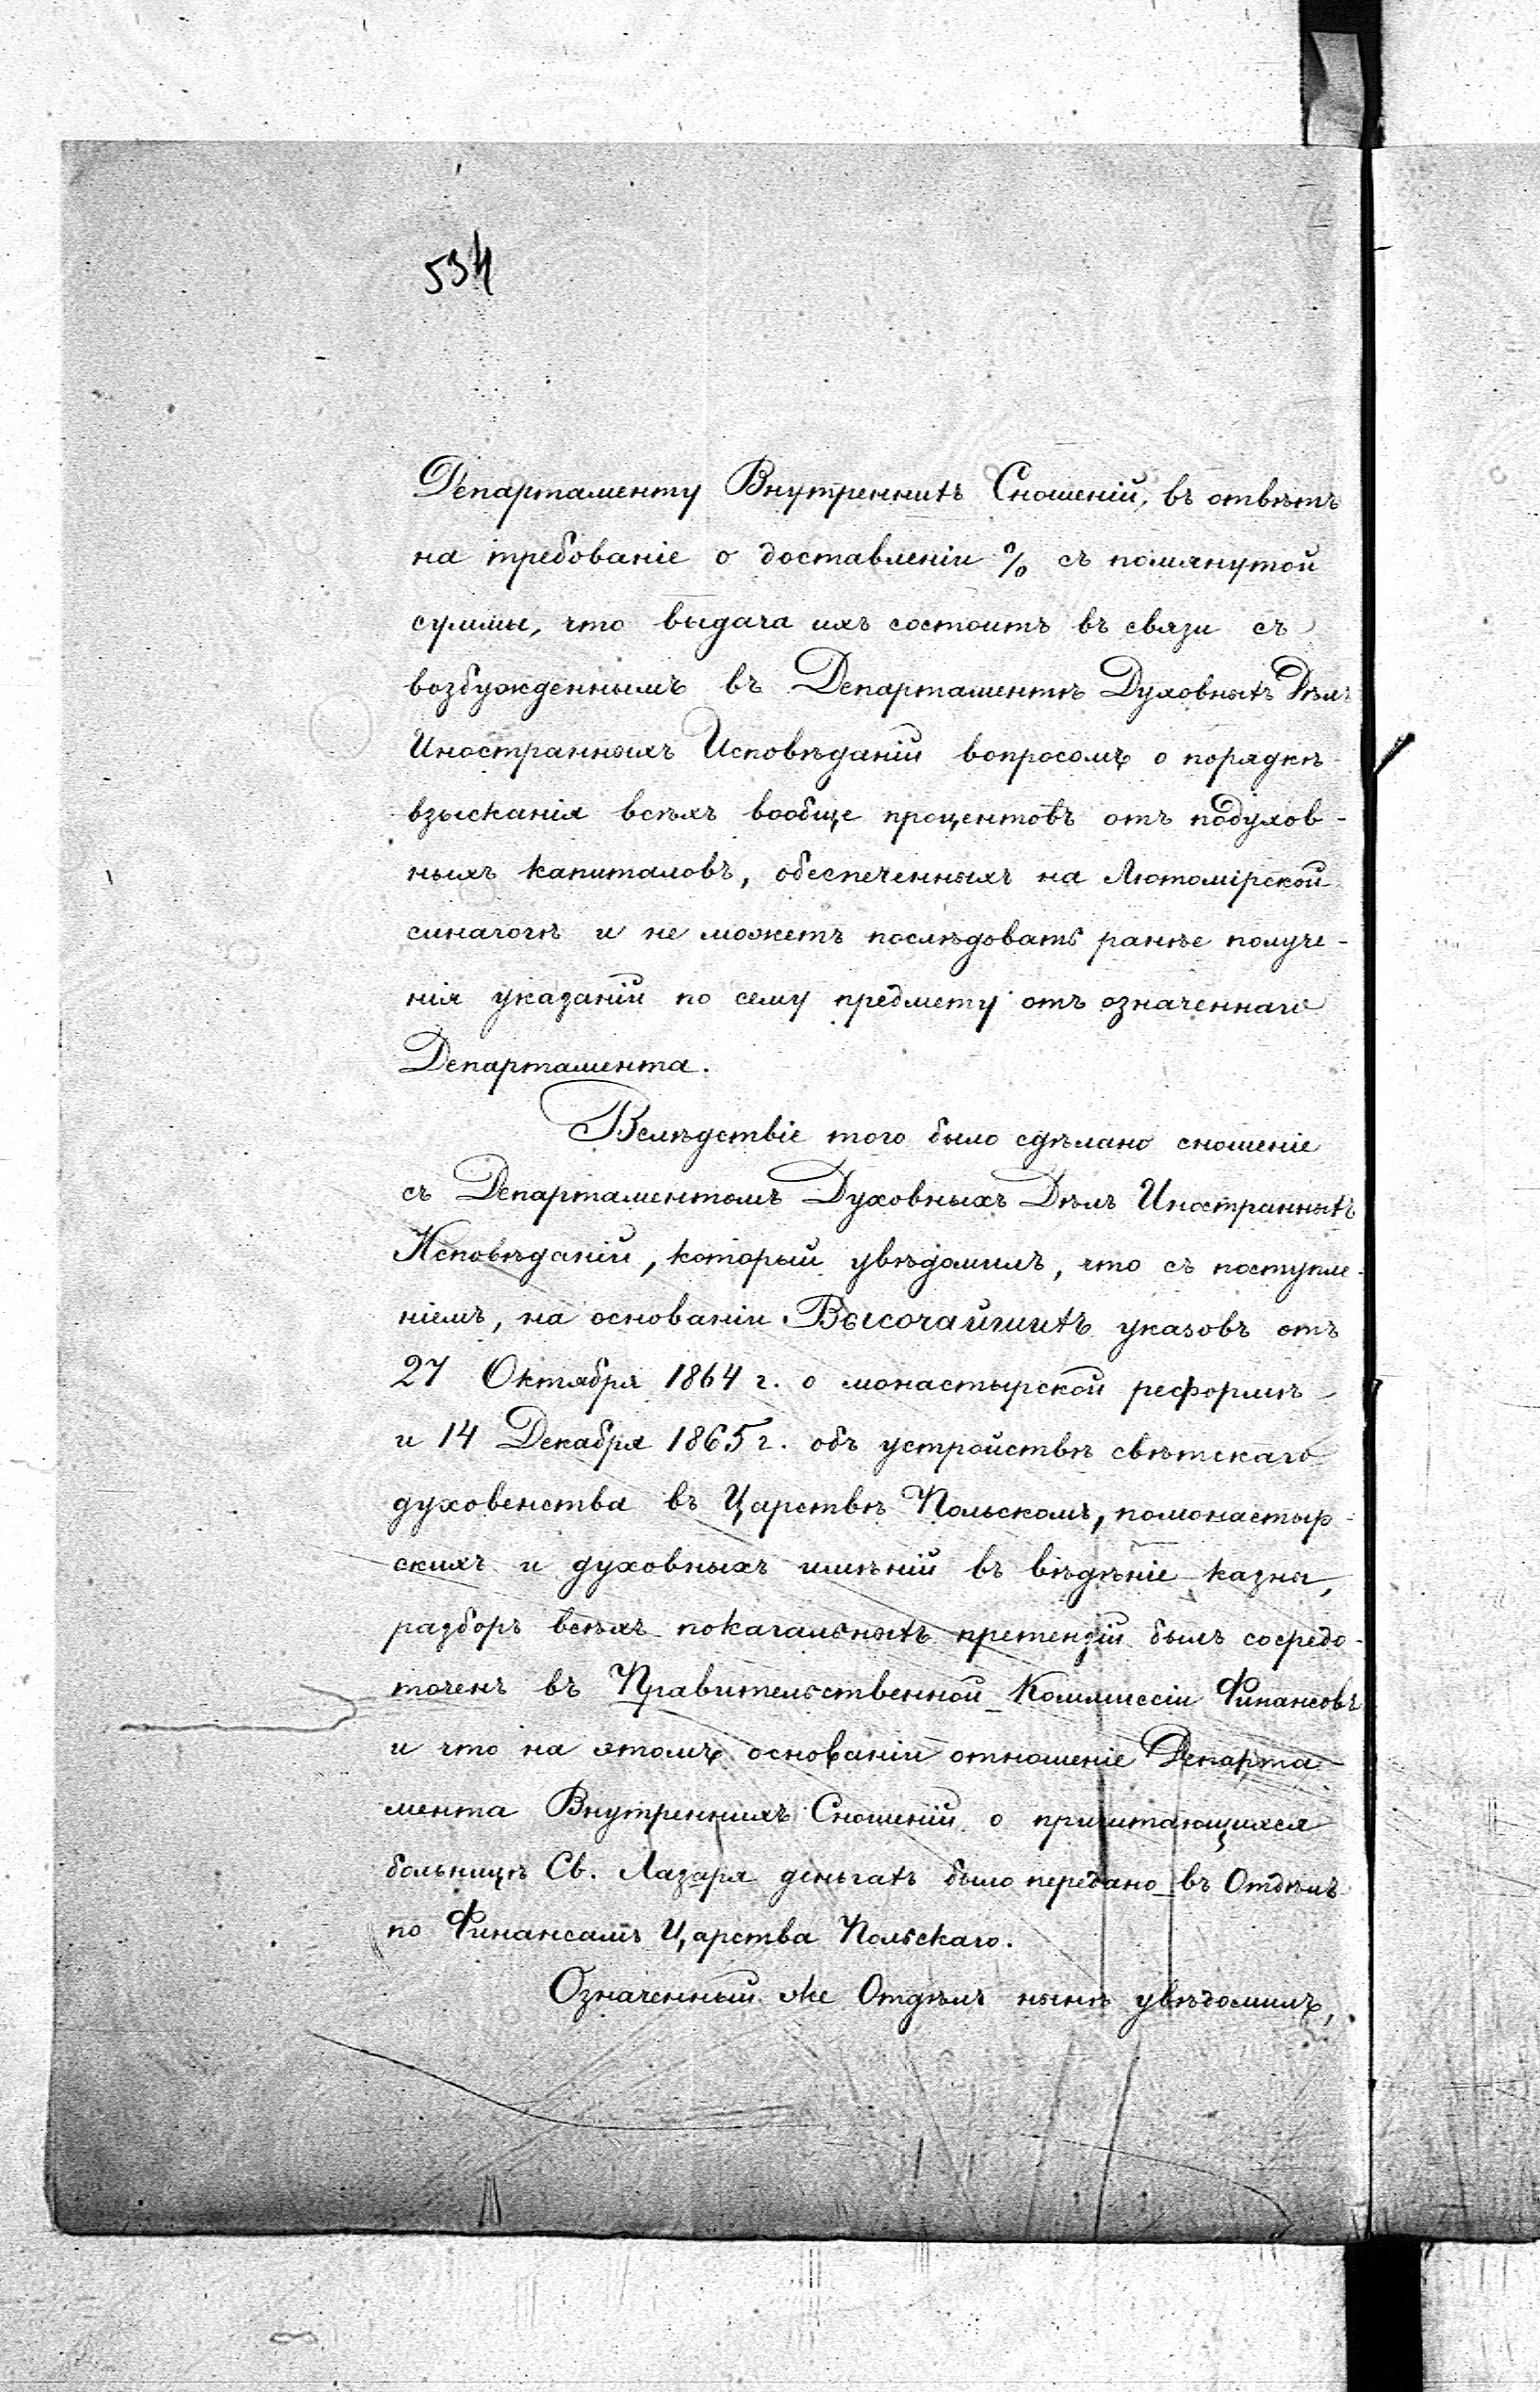 534
Департаменту Внутреннихъ Сношеній, въ отвѣтъ
на требованіе о доставленіи % съ помянутой
суммы, что выдача ихъ состоитъ въ связи съ
возбужденнымъ въ Департаментѣ Духовныхъ Дѣлъ
Иностранныхъ Исповѣданій вопросомъ о порядкѣ
взысканія всѣхъ вообще процентовъ отъ подухов-
ныхъ капиталовъ, обеспеченныхъ на Лютомірской
синагогѣ и не можетъ послѣдовать ранѣе получе-
нія указаній по сему предмету отъ означеннаго
Департамента.
Вслѣдствіе того было сдѣлано сношеніе
съ Департаментомъ Духовныхъ Дѣлъ Иностранныхъ
Исповѣданій, который увѣдомилъ, что съ поступле-
ніемъ, на основаніи Высочайшихъ указовъ отъ
27 Октября 1864 г. о монастырской реформѣ
и 14 Декабря 1865 г. объ устройствѣ свѣтскаго
духовенства въ Царствѣ Польскомъ, помонастыр-
скихъ и духовныхъ имѣній въ вѣдѣніе казны,
разборъ всѣхъ покагальныхъ претензій былъ сосредо-
точенъ въ Правительственной Коммиссіи Финансовъ
и что на этомъ основаніи отношеніе Департа-
мента Внутреннихъ Сношеній о причитающихся
больницѣ Св. Лазаря деньгахъ было передано въ Отдѣлъ
по Финансамъ Царства Польскаго.
Означенный же Отдѣлъ нынѣ увѣдомилъ,